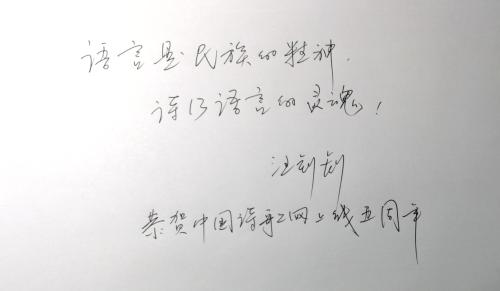 语言是民族的精神.
诗乃语言的灵魂!
汪剑钊
恭贺中国诗歌网上线五周年